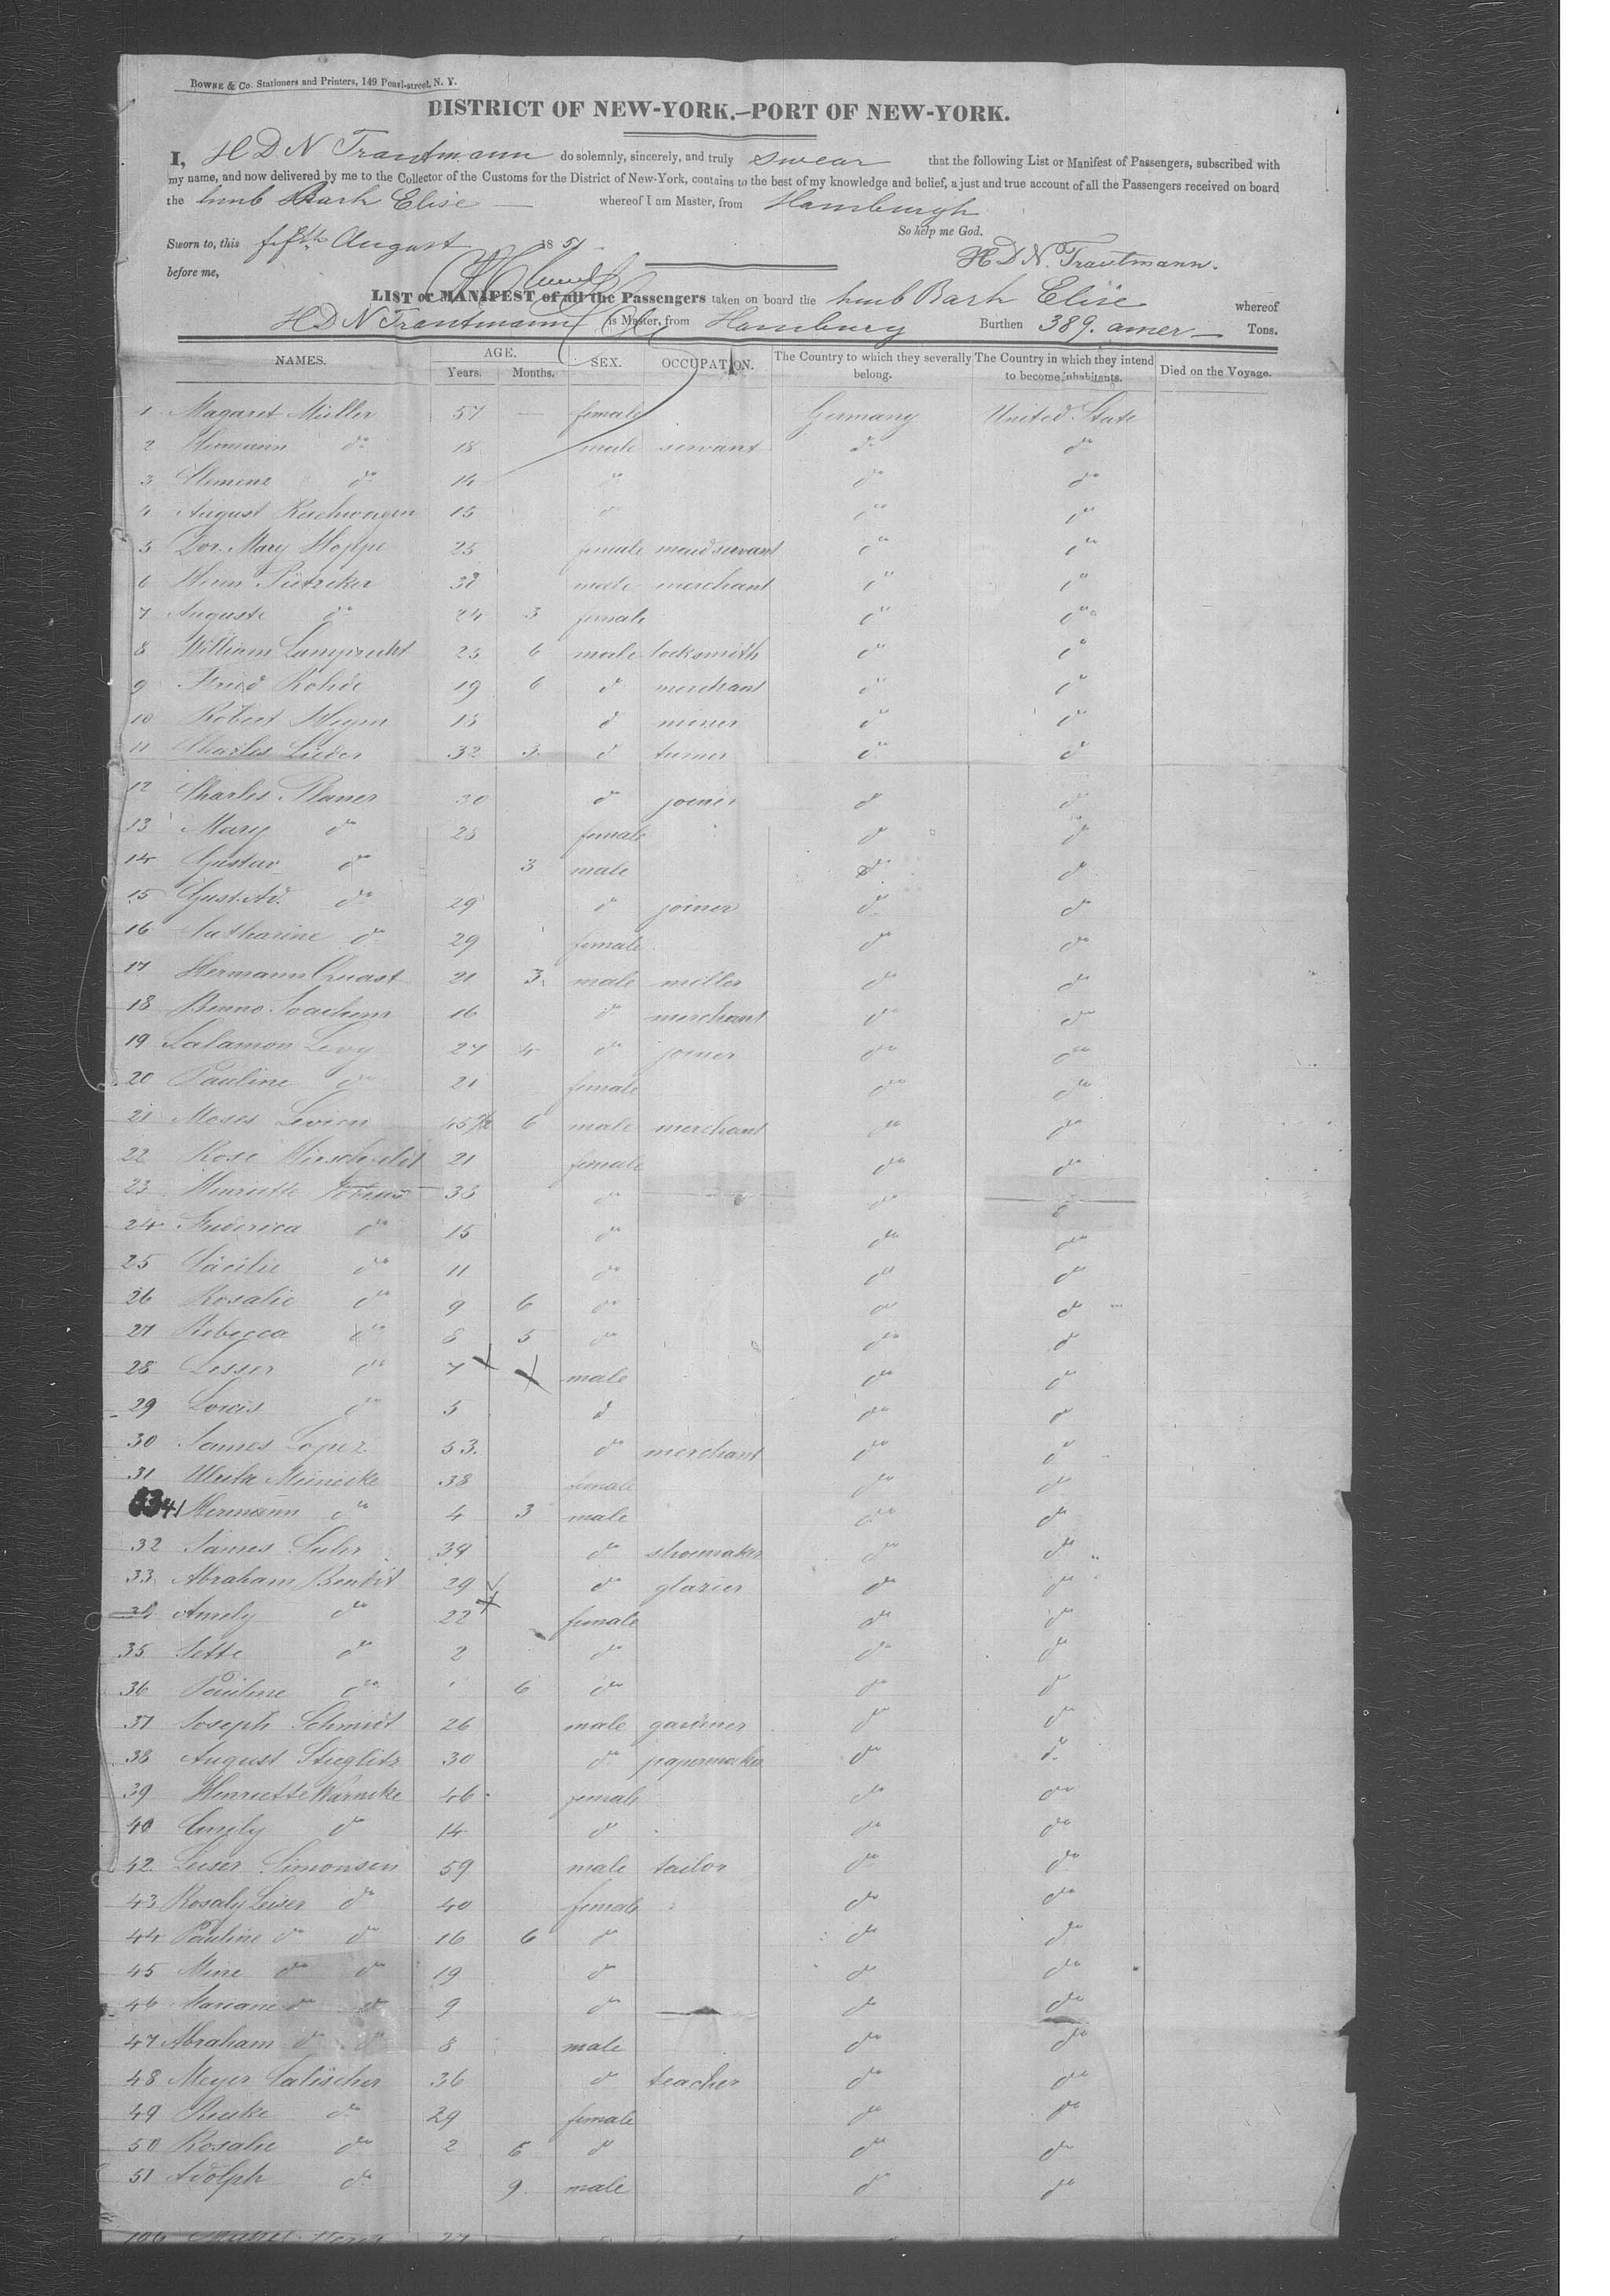 BOWNE & Co. Stationers and Printers, 149 Pearl-street, N. Y.
DISTRICT OF NEW-YORK.—PORT OF NEW-YORK.
I, H D N Trautmann do solemnly, sincerely, and truly swear that the following List or Manifest of Passengers, subscribed with
my name, and now delivered by me to the Collector of the Customs for the District of New-York, contains to the best of my knowledge and belief, a just and true account of all the Passengers received on board
the hmb Bark Elise — whereof I am Master, from Hamburgh
So help me God.
Sworn to, this fifth August 1851
H D N. Trautmann.
before me,
LIST or MANIFEST of all the Passengers taken on board the hmb Bark Elise whereof
H D N Trautmann is Master, from Hamburg Burthen 389. amer — Tons.
NAMES. AGE. SEX. OCCUPATION. The Country to which they severally belong. The Country in which they intend to become inhabitants. Died on the Voyage.
Years. Months.
1 Magaret Müller 57 — female Germany United State
2 Hermann do 18 male servant do do
3 Clemenz do 14 do do do
4 August 15 do do do
5 Dor. Mary Hoppe 25 female maid servant do do
6 Herm 38 male merchant do do
7 Auguste do 24 3 female do do
8 William Lamprecht 25 6 male locksmith do do
9 Fried Rohde 19 6 do merchant do do
10 Robert 18 do miner do do
11 Charles Lüder 32 3 do turner do do
12 Charles Planer 30 do joiner do do
13 Mary do 28 female do do
14 Gustav do 3 male do do
15 Gust. Ad. do 29 do joiner do do
16 Catharine do 29 female do do
17 Hermann Quast 21 3 male miller do do
18 Benno Joachim 16 do merchant do do
19 Salamon Levy 27 4 do joiner do do
20 Pauline do 21 female do do
21 Moses Levien 45 6 male merchant do do
22 Rose 21 female do do
23 Henriette 38 do do do
24 Frederica do 15 do do do
25 Cäcilie do 11 do do do
26 Rosalie do 9 6 do do do
27 Rebecca do 8 5 do do do
28 Lesser do 7 male do do
29 Lowis do 5 do do do
30 James Lopez 53. do merchant do do
31 Ulrike Meinecke 38 female do do
41 Hermann do 4 3 male do do
32 James 39 do shoemaker do do
33 Abraham Bendit 29 do glazier do do
34 Amely do 22 female do do
35 Jette do 2 do do do
36 Pauline do 6 do do do
37 Joseph Schmidt 26 male gardiner do do
38 August Stieglitz 30 do papermaker do do
39 Henriette Warneke 46 female do do
40 Emely do 14 do do do
42 Leiser Simonsen 59 male tailor do do
43 Rosaly Leiser do 40 female do do
44 Pauline do do 16 6 do do do
45 Mine do do 19 do do do
46 Mariane do do 9 do do do
47 Abraham do do 8 male do do
48 Meyer Calischer 36 do teacher do do
49 do 29 female do do
50 Rosalie do 2 6 do do do
51 Adolph do 9 male do do